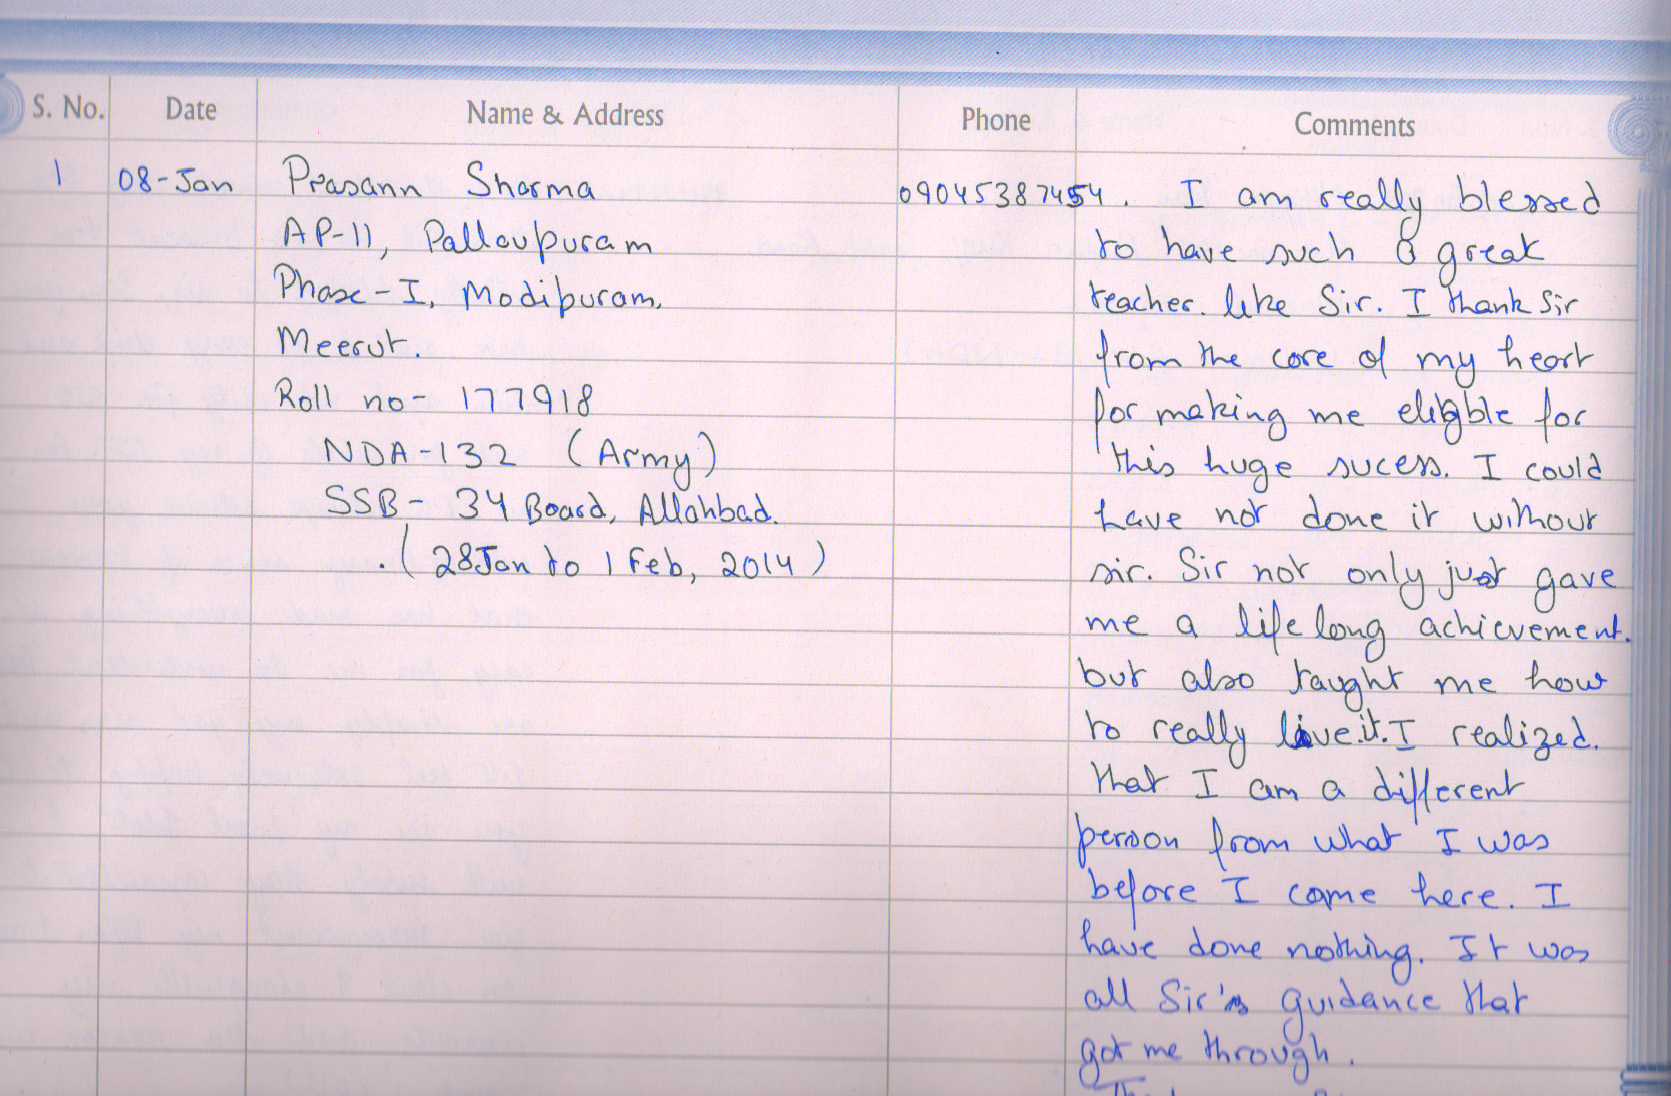 S. No. Date Name & Address Phone Comments
1 08-Jan Prasann Sharma 09045387454. I am really blessed
AP-11, Pallavpuram to have such a great
Phase-I, Modipuram, teacher. like Sir. I thank Sir
Meerut. from the core of my heart
Roll no- 177918 for making me eligble for
NDA-132 (Army) this huge sucess. I could
SSB- 34 Board, Allahbad. have not done it without
.(28Jan to 1 Feb, 2014) sir. Sir not only just gave
me a life long achievement.
but also taught me how
to really live.it. I realized.
that I am a different
person from what I was
before I came here. I
have done nothing. It was
all Sir's guidance that
got me through.